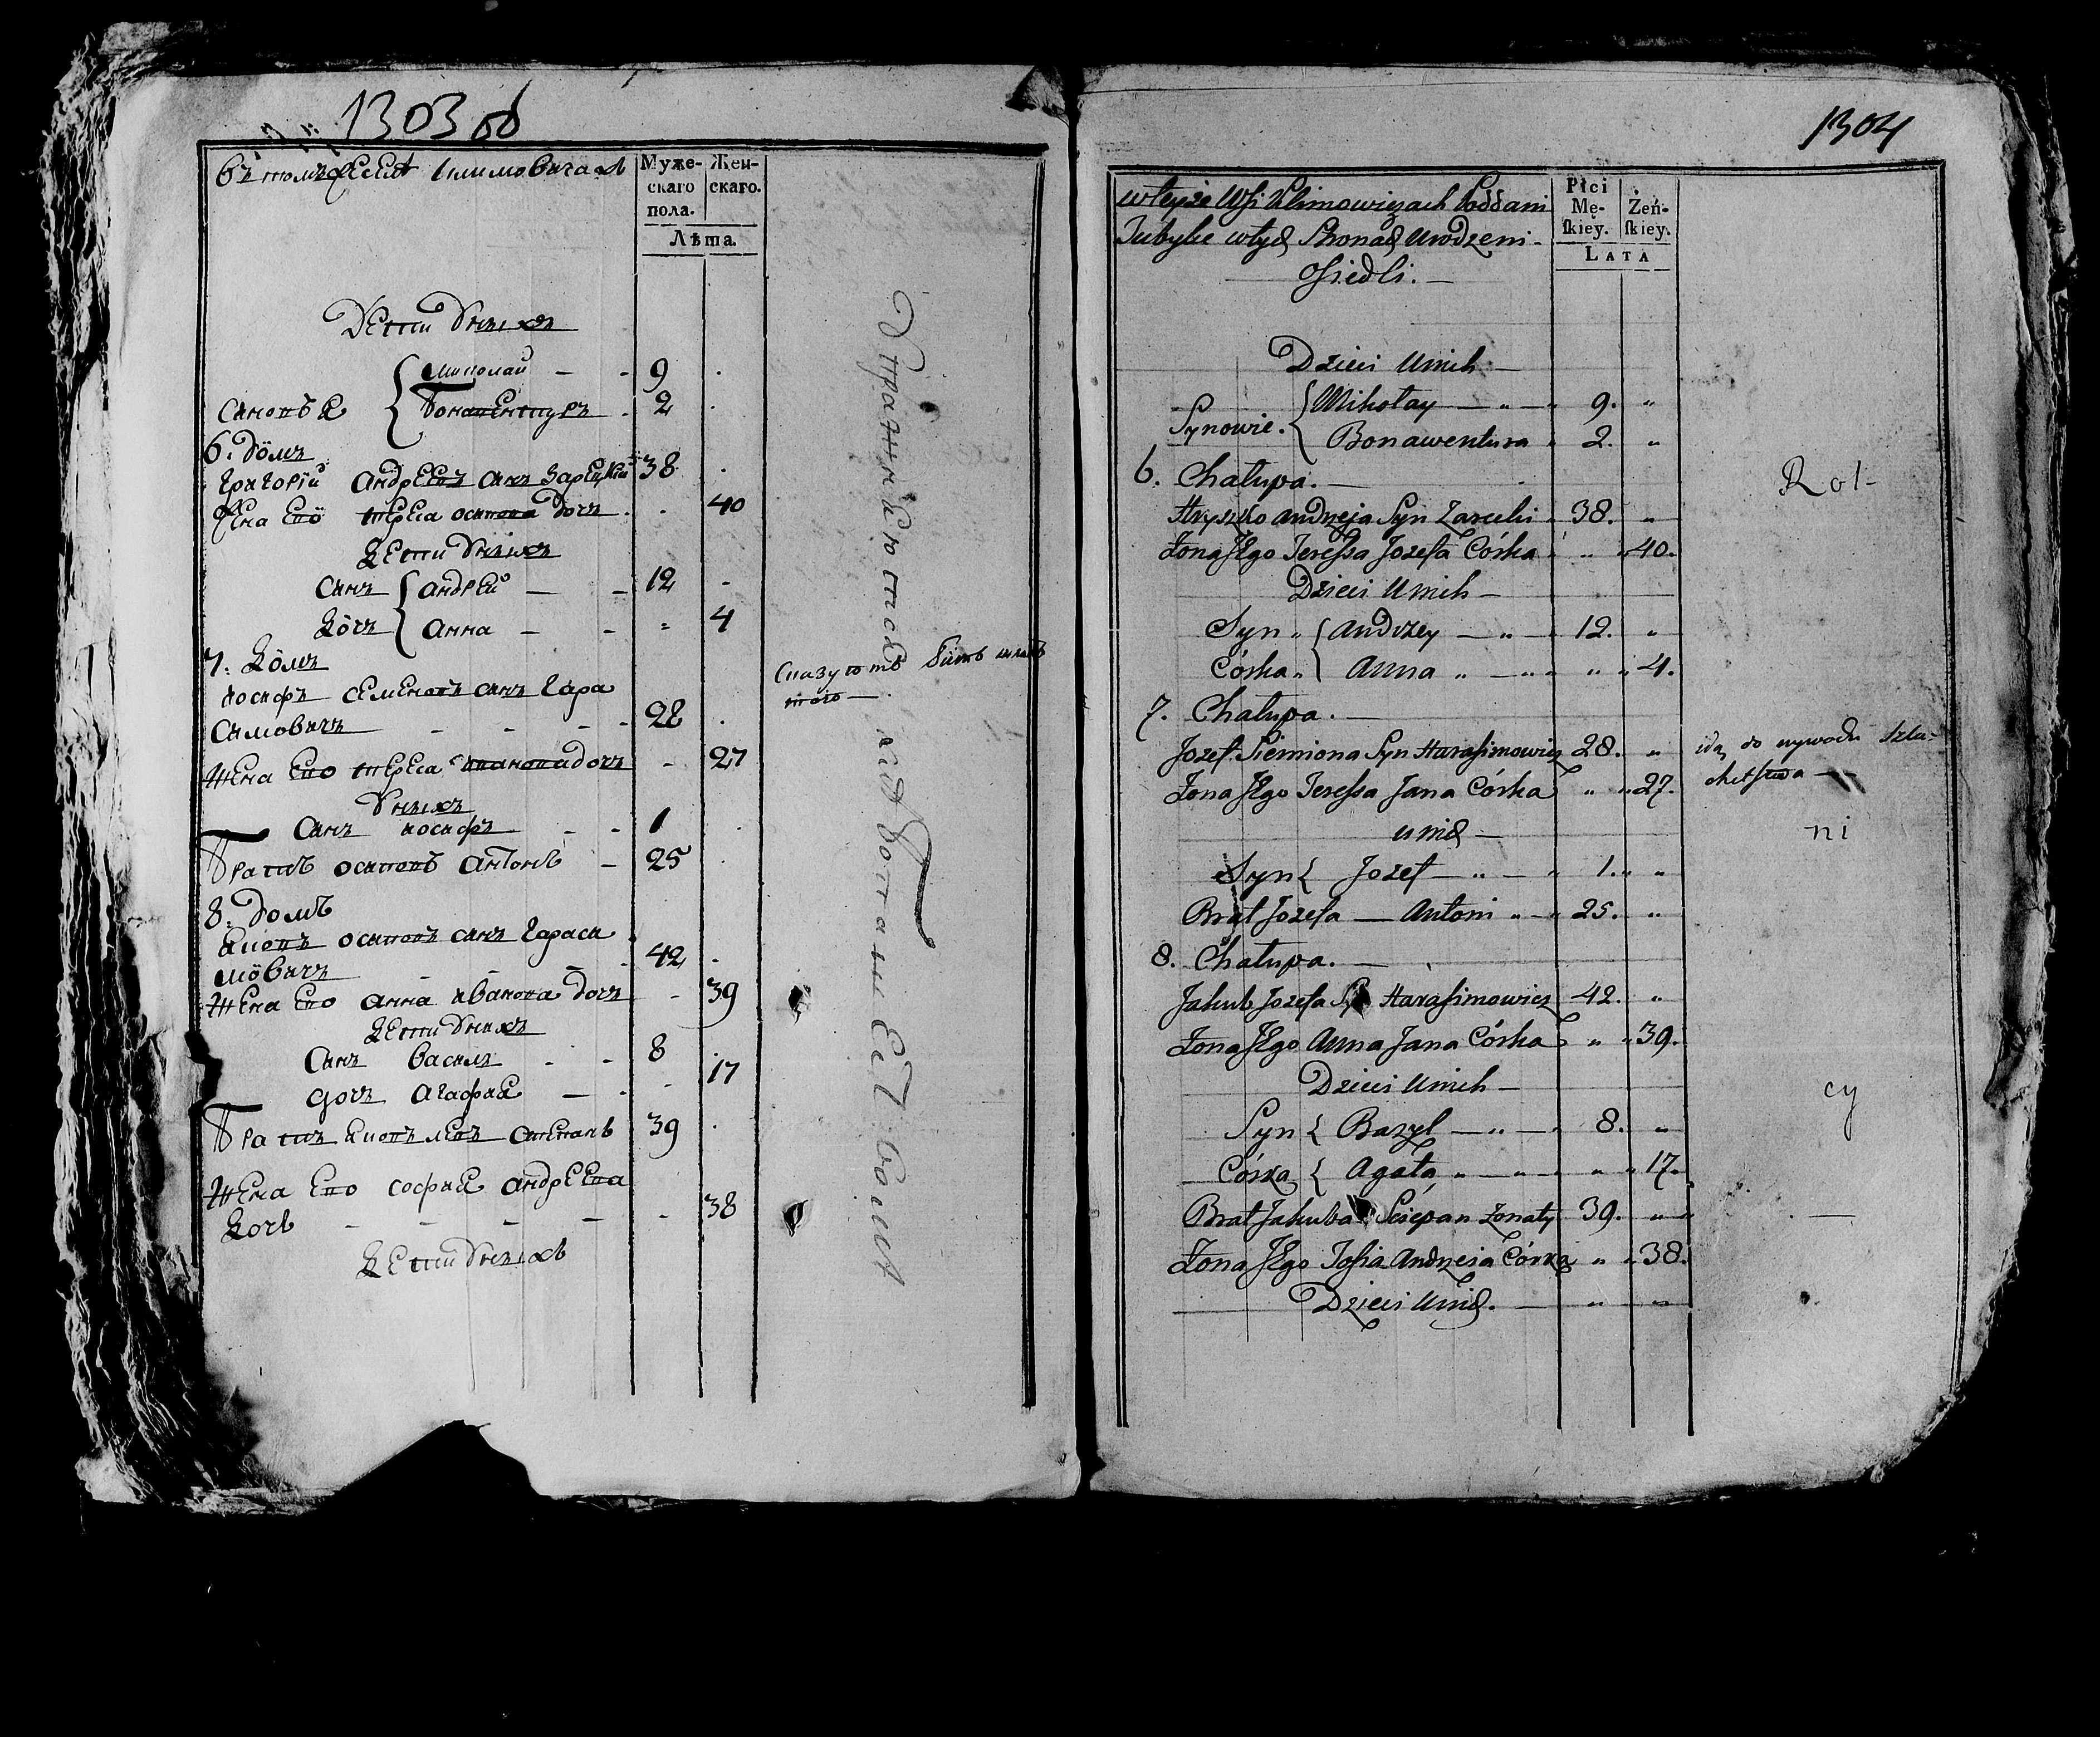 1303 об
въ томъ селѣ Климовичахъ
Муже-
скаго
пола.
Жен-
скаго.
Лѣта.
Дѣти Унихъ
Николай — - 9 .
Сыновья
Бонавентура . 2 .
6. домъ
Григорiй Андреевъ сынъ Зарецкiй 38 .
Жена Ево Тереса осипова дочь . . 40
Дѣти Унихъ
Сынъ Андрей — - 12 -
Дочь Анна - - = 4
7. Домъ
иосифъ Семеновъ сынъ Гара
симовичъ - - - - 28 .
Жена Ево Тереса иванова дочь - 27
Унихъ
Сынъ иосифъ - - 1 .
Братъ осиповъ Антонъ - 25 .
8. домъ
Яковъ осиповъ сынъ Гараси
мовичъ - - - - 42 .
Жена Ево Анна иванова дочь - 39
Дѣти Унихъ
Сынъ Василь - - 8 .
дочь Агафия — - - 17
Братъ Яковлевъ Степанъ 39 .
Жена Ево София Андреева
Дочь - - - - - 38
Дѣти Унихъ
Сказуютъ
того —
1304
w teyże Wsi Klimowiczach Poddani
Tubylce w tych Stronach Urodzeni
Osiedli. —
Płci
Mę-
skiey.
Żeń-
skiey.
LATA
Dzieci Unich —
Mikołay — „ — „ 9. „
Synowie.
Bonawentura „ 2. „
6. Chałupa. —
Hryszko Andrzeja Syn Zarecki „ 38. „
Żona Jego Teressa Jozefa Córka „ „ „ 40.
Dzieci Unich —
Syn „ Andrzey — „ — 12. „
Córka „ Anna „ — „ „ „ 4.
7. Chałupa. —
Jozef Siemiona Syn Harasimowicz 28. „
Żona Jego Teressa Jana Córka „ „ 27.
Unich —
Syn Jozef — „ — „ 1. „ „
Brat Jozefa — Antoni „ — „ 25. „
8. Chałupa. —
Jakub Jozefa Syn Harasimowicz 42. „
Żona Jego Anna Jana Córka „ „ 39.
Dzieci Unich —
Syn Bazyl — „ — „ 8. „
Córka Agata „ — „ — „ „ 17.
Brat Jakuba Sciepan Żonaty 39. „ „
Żona Jego Zofia Andrzeja Córka „ „ 38.
Dzieci Unich. — „ „
Rol-
idą do wywodu Szla-
chetstwa —
ni
cy
—